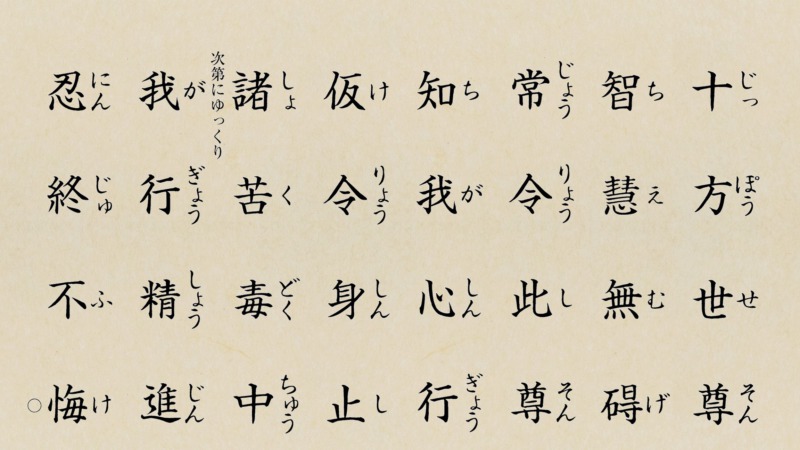 十方世尊
じっぽうせそん
智慧無碍
ちえむげ
常令此尊
じょうりょうしそん
知我心行
ちがしんぎょう
仮令身止
けりょうしんし
諸苦毒中
しょくどくちゅう
次第にゆっくり
我行精進
がぎょうしょうじん
忍終不悔○
にんじゅふけ